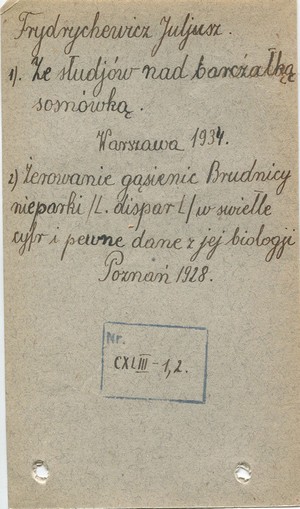 Frydrychewicz Juljusz.
1). Ze studjów nad barczatką
sosnówką.
Warszawa 1934.
2) Żerowanie gąsienic Brudnicy
nieparki /L. dispar L/ w świetle
cyfr i pewne dane z jej biologji
Poznań 1928.
Nr.
CXLIII - 1,2.